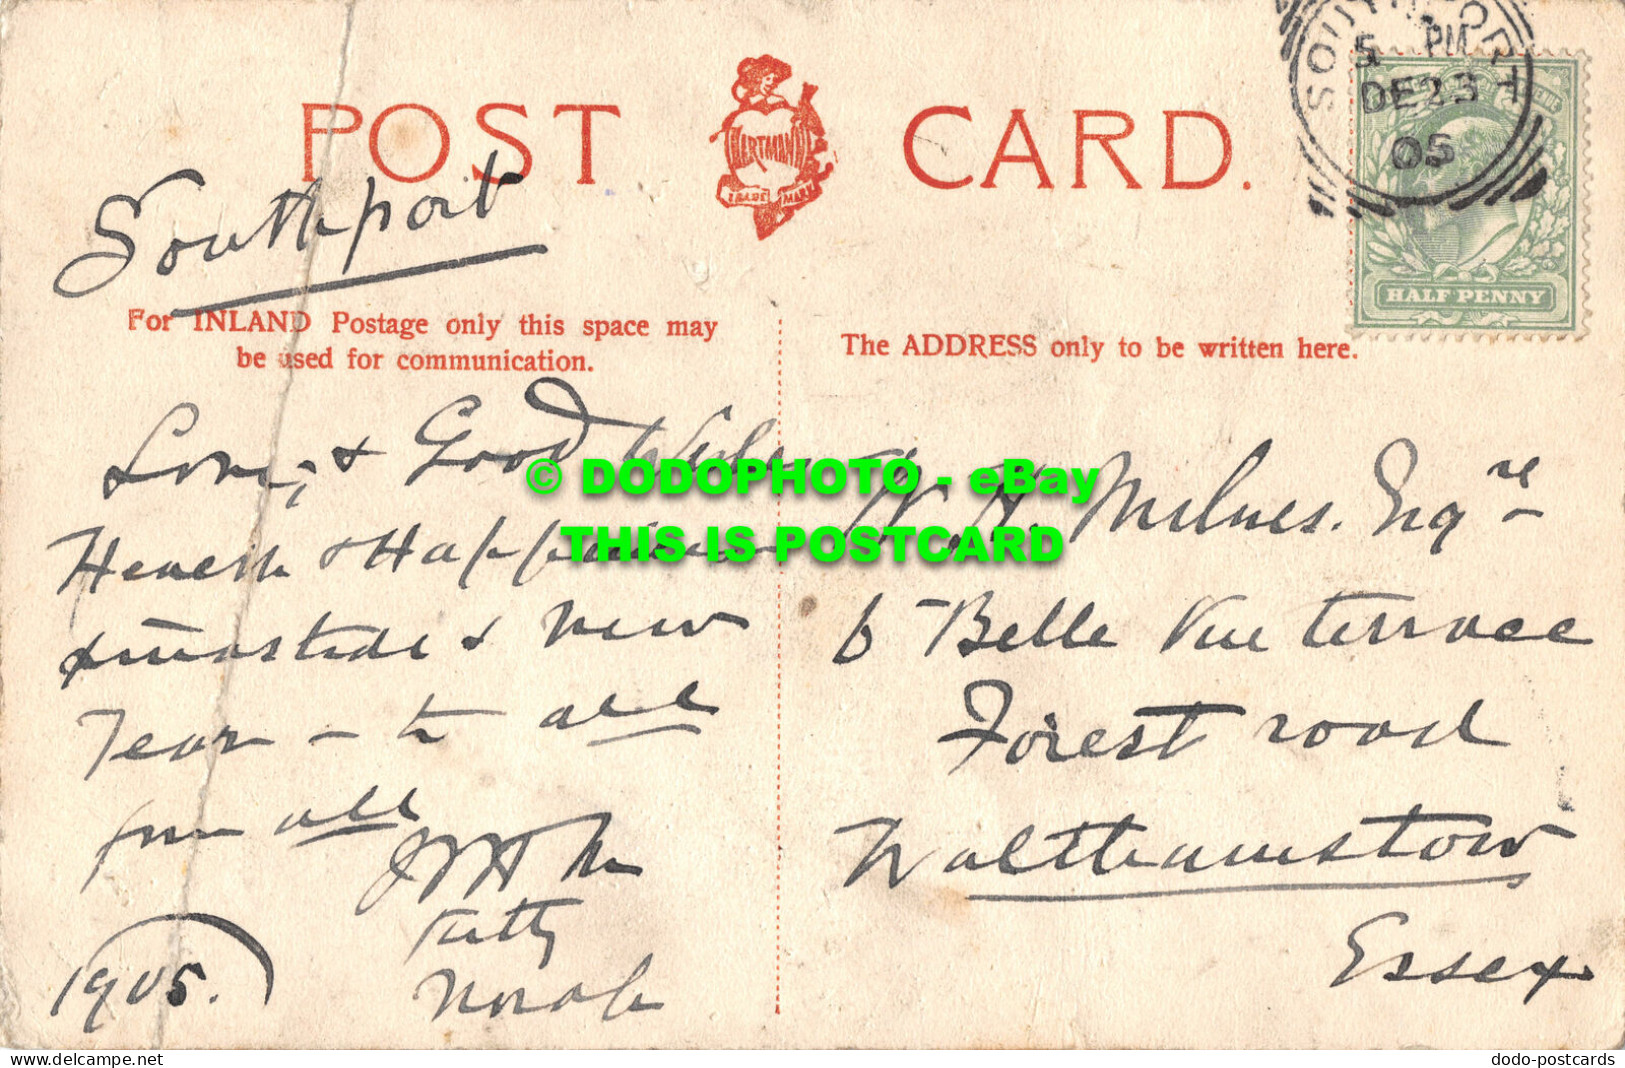 POST CARD.
HARTMANN
TRADE MARK
SOUTHPORT
5 PM
DE 23
05
HALF PENNY
Southport
For INLAND Postage only this space may
be used for communication.
The ADDRESS only to be written here.
Love, & Good Wishes
Health & Happiness
Xmastide & New
Year – to all
from all
Kitty
Norah
1905.
W. H. Milnes. Esqre
6 Belle Vue Terrace
Forest road
Walthamstow
Essex
© DODOPHOTO - eBay
THIS IS POSTCARD
delcampe.net
dodo-postcards